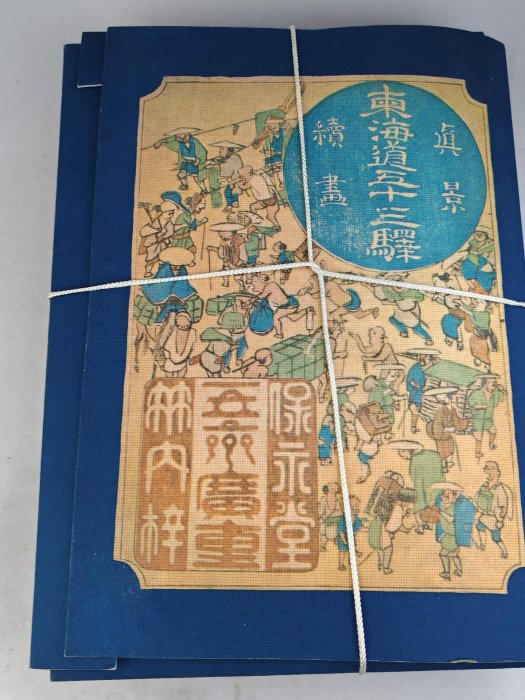 眞景
東海道五十三驛
續畫
保永堂
一立齋廣重
竹内梓